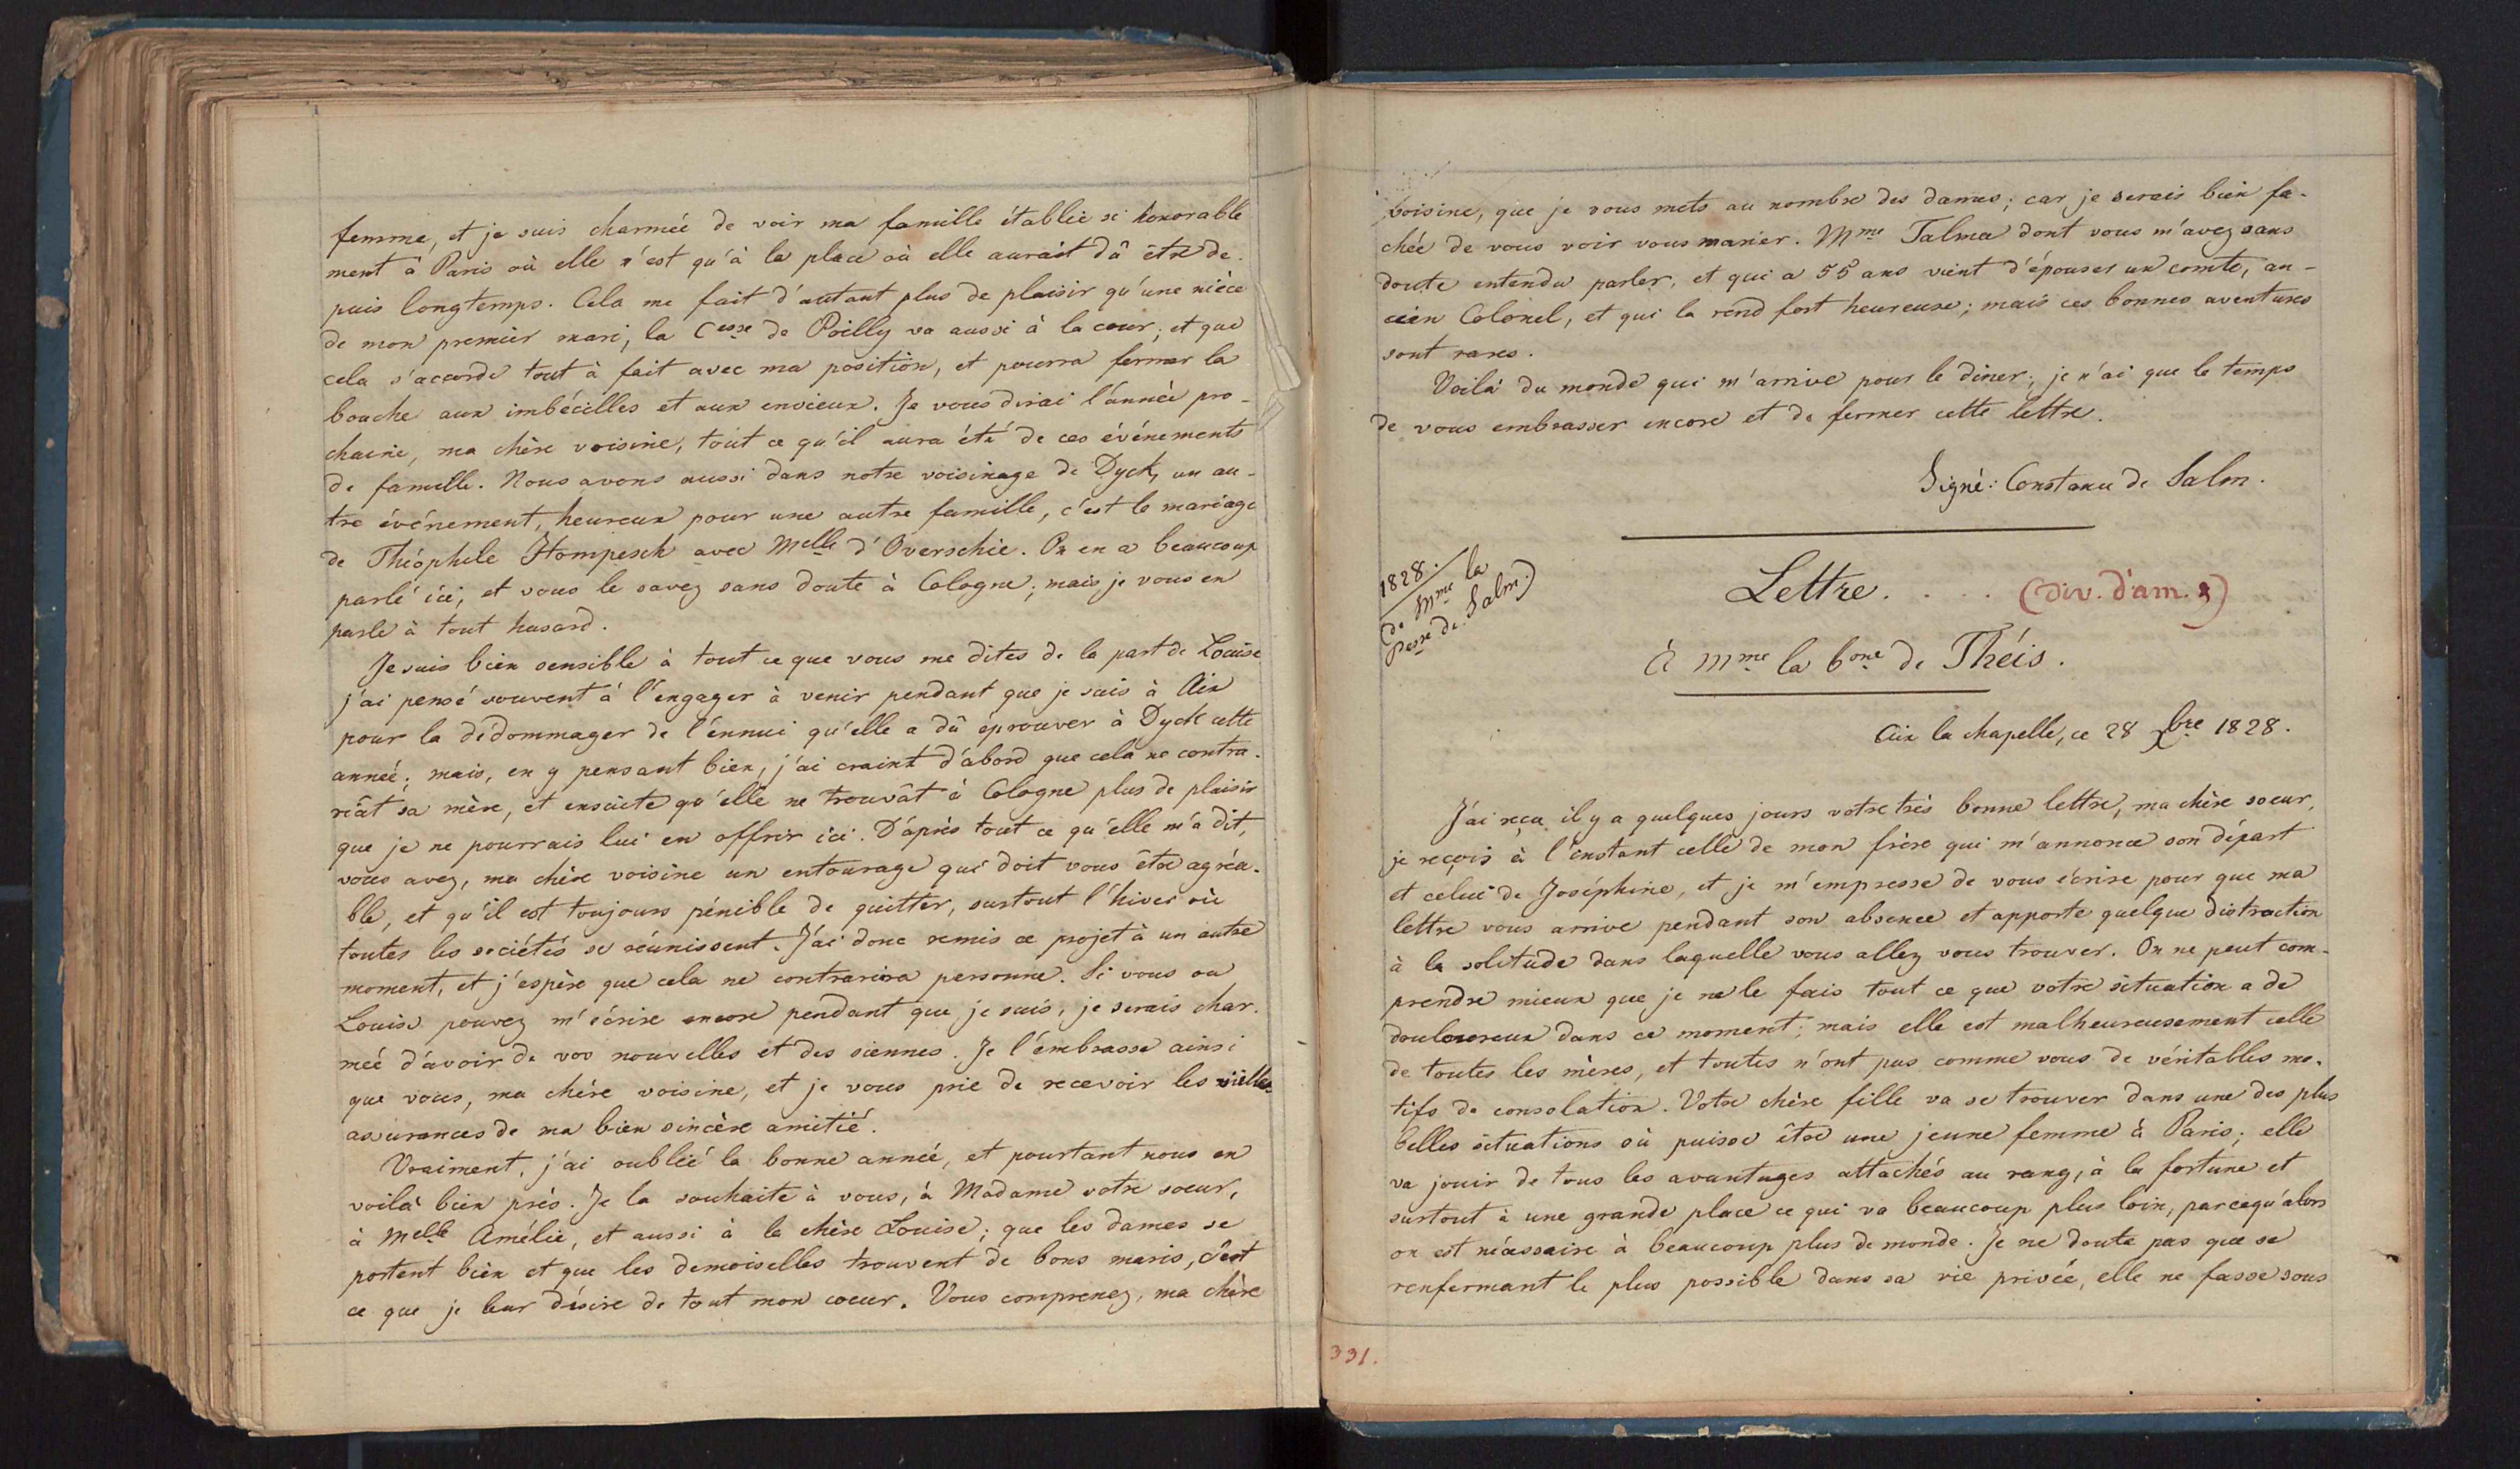 femme, et je suis charmée de voir ma famille établie si honorable
ment à Paris où elle n'est qu'à la place où elle aurait dû être de-
puis longtemps. Cela me fait d'autant plus de plaisir qu'une nièce
de mon premier mari, la Cesse de Poilly va aussi à la cour, et que
cela s'accorde tout à fait avec ma position, et pourra fermer la
bouche aux imbécilles et aux envieux. Je vous dirai l'année pro-
chaine, ma chère voisine, tout ce qu'il aura été de ces événements
de famille. Nous avons aussi dans notre voisinage de Dyck, un au-
tre événement, heureux pour une autre famille, c'est le mariage
de Théophile Hompesch avec Melle d'Overschie. On en a beaucoup
parlé ici, et vous le savez sans doute à Cologne; mais je vous en
parle à tout hasard.
Je suis bien sensible à tout ce que vous me dites de la part de Louise
j'ai pensé souvent à l'engager à venir pendant que je suis à Aix
pour la dédommager de l'ennui qu'elle a dû éprouver à Dyck cette
année; mais, en y pensant bien, j'ai craint d'abord que cela ne contra-
riât sa mère, et ensuite qu'elle ne trouvât à Cologne plus de plaisir
que je ne pourrais lui en offrir ici. D'après tout ce qu'elle m'a dit,
vous avez, ma chère voisine un entourage qui doit vous être agréa-
ble, et qu'il est toujours pénible de quitter, surtout l'hiver où
toutes les sociétés se réunissent. J'ai donc remis ce projet à un autre
moment, et j'espère que cela ne contrariera personne. Si vous ou
Louise pouvez m'écrire encore pendant que je suis, je serais char-
mée d'avoir de vos nouvelles et des siennes. Je l'embrasse ainsi
que vous, ma chère voisine, et je vous prie de recevoir les
assurances de ma bien sincère amitié.
Vraiment, j'ai oublié la bonne année, et pourtant nous en
voilà bien près. Je la souhaite à vous, à Madame votre soeur,
à Melle Amélie, et aussi à la chère Louise; que les dames se
portent bien et que les demoiselles trouvent de bons maris, c'est
ce que je leur désire de tout mon coeur. Vous comprenez, ma chère
voisine, que je vous mets au nombre des dames; car je serais bien fa-
chée de vous voir vous marier. Mme Talma dont vous m'avez sans
doute entendu parler, et qui a 55 ans vient d'épouser un comte, an-
cien Colonel, et qui la rend fort heureuse; mais ces bonnes aventures
sont rares.
Voilà du monde qui m'arrive pour le diner; je n'ai que le temps
de vous embrasser encore et de fermer cette lettre.
Signé: Constance de Salm.
1828.
(de Mme la
Pesse de Salm.)
Lettre. . . . (Div. d'am. )
à Mme la bone de Théis.
Aix la chapelle, ce 28 Xbre 1828.
J'ai reçu il y a quelques jours votre très bonne lettre, ma chère soeur,
je reçois à l'instant celle de mon frère qui m'annonce son départ
et celui de Joséphine, et je m'empresse de vous écrire pour que ma
lettre vous arrive pendant son absence et apporte quelque distraction
à la solitude dans laquelle vous allez vous trouver. On ne peut com-
prendre mieux que je ne le fais tout ce que votre situation a de
douloureux dans ce moment; mais elle est malheureusement celle
de toutes les mères, et toutes n'ont pas comme vous de véritables mo-
tifs de consolation. Votre chère fille va se trouver dans une des plus
belles situations où puisse être une jeune femme à Paris; elle
va jouir de tous les avantages attachés au rang, à la fortune et
surtout à une grande place ce qui va beaucoup plus loin, parcequ'alors
on est nécessaire à beaucoup plus de monde. Je ne doute pas que se
renfermant le plus possible dans sa vie privée, elle ne fasse sous
331.